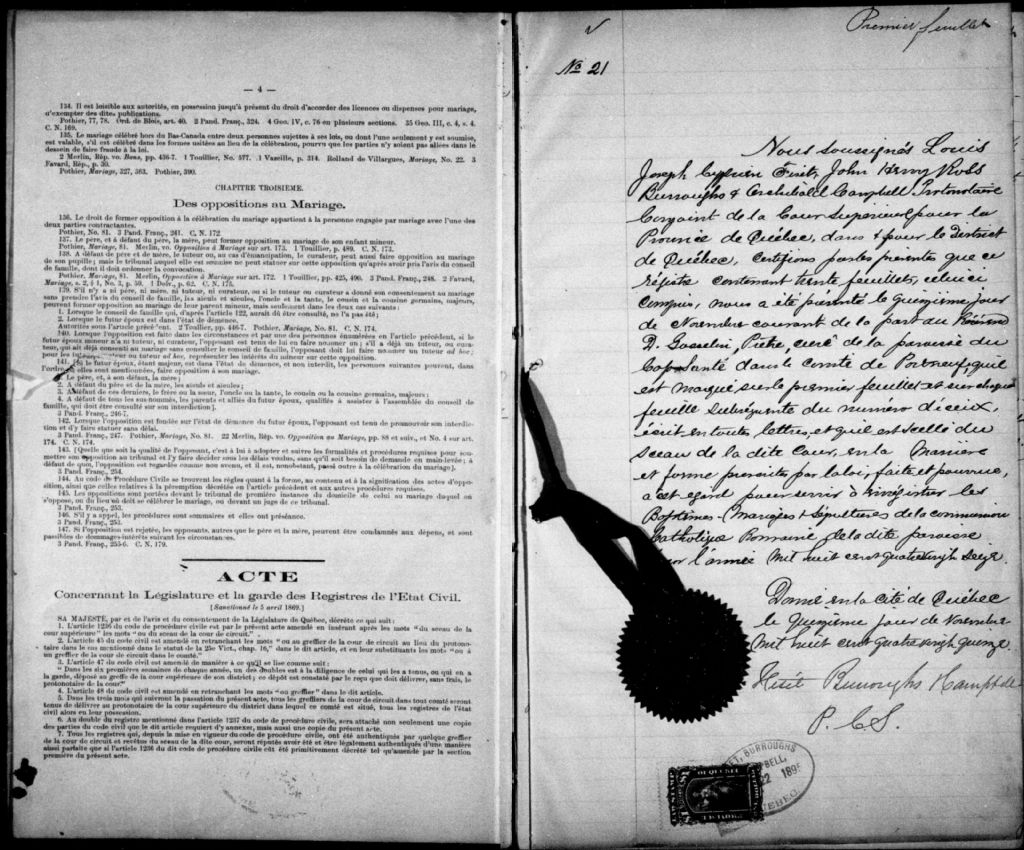 — 4 —
134. Il est loisible aux autorités, en possession jusqu'à présent du droit d'accorder des licences ou dispenses pour mariage,
d'exempter des dites publications.
Pothier, 77, 78. Ord. de Blois, art. 40. 2 Pand. Franç., 324. 4 Geo. IV, c. 76 en plusieurs sections. 35 Geo. III, c. 4, s. 4.
C. N. 169.
135. Le mariage célébré hors du Bas-Canada entre deux personnes sujettes à ses lois, ou dont l'une seulement y est soumise,
est valable, s'il est célébré dans les formes usitées au lieu de la célébration, pourvu que les parties n'y soient pas allées dans le
dessein de faire fraude à la loi.
2 Merlin, Rép. vo. Bans, pp. 436-7. 1 Touillier, No. 577. 1 Vazeille, p. 314. Rolland de Villargues, Mariage, No. 22. 3
Favard, Rép., p. 30.
Pothier, Mariage, 327, 363. Pothier, 390.
CHAPITRE TROISIEME.
Des oppositions au Mariage.
136. Le droit de former opposition à la célébration du mariage appartient à la personne engagée par mariage avec l'une des
deux parties contractantes.
Pothier, No. 81. 3 Pand. Franç., 241. C. N. 172.
137. Le père, et à défaut du père, la mère, peut former opposition au mariage de son enfant mineur.
Pothier, Mariage, 81. Merlin, vo. Opposition à Mariage sur art. 173. 1 Touillier, p. 489. C. N. 173.
138. A défaut de père et de mère, le tuteur ou, au cas d'émancipation, le curateur, peut aussi faire opposition au mariage
de son pupille; mais le tribunal auquel elle est soumise ne peut statuer sur cette opposition qu'après avoir pris l'avis du conseil
de famille, dont il doit ordonner la convocation.
Pothier, Mariage, 81. Merlin, Opposition à Mariage sur art. 172. 1 Touillier, pp. 425, 490. 3 Pand. Franç., 248. 2 Favard,
Mariage, s. 2, § 1, No. 3, p. 59. C. N. 175.
139. S'il n'y a ni père, ni mère, ni tuteur, ni curateur, ou si le tuteur ou curateur a donné son consentement au mariage
sans prendre l'avis du conseil de famille, les aïeuls et aïeules, l'oncle et la tante, le cousin et la cousine germains, majeurs,
peuvent former opposition au mariage de leur parent mineur, mais seulement dans les deux cas suivants:
1. Lorsque le conseil de famille qui, d'après l'article 122, aurait dû être consulté, ne l'a pas été;
2. Lorsque le futur époux est dans l'état de démence.
Autorités sous l'article précédent. 2 Touillier, pp. 446-7. Pothier, Mariage, No. 81. C. N. 174.
140. Lorsque l'opposition est faite dans les circonstances et par une des personnes énumérées en l'article précédent, si le
futur époux mineur n'a ni tuteur, ni curateur, l'opposant est tenu de lui en faire nommer un; s'il a déjà un tuteur, ou cura-
teur, qui ait déjà consenti au mariage sans consulter le conseil de famille, l'opposant doit lui faire nommer un tuteur ad hoc;
pour les tuteur ou tuteur ad hoc, représenter les intérêts du mineur sur cette opposition.
141. Si le futur époux, étant majeur, est dans l'état de démence, et non interdit, les personnes suivantes peuvent, dans
l'ordre où elles sont mentionnées, faire opposition à son mariage.
Le père, et, à son défaut, la mère;
2. A défaut du père et de la mère, les aïeuls et aïeules;
3. A défaut de ces derniers, le frère ou la sœur, l'oncle ou la tante, le cousin ou la cousine germains, majeurs;
4. A défaut de tous les sus nommés, les parents et alliés du futur époux, qualifiés à assister à l'assemblée du conseil de
famille, qui doit être consulté sur son interdiction].
3 Pand. Franç., 246-7.
142. Lorsque l'opposition est fondée sur l'état de démence du futur époux, l'opposant est tenu de promouvoir son interdic-
tion et d'y faire statuer sans délai.
3 Pand. Franç., 247. Pothier, Mariage, No. 81. 22 Merlin, Rép. vo. Opposition au Mariage, pp. 88 et suiv., et No. 4 sur art.
174. C. N. 174.
143. [Quelle que soit la qualité de l'opposant, c'est à lui à adopter et suivre les formalités et procédures requises pour sou-
mettre son opposition au tribunal et l'y faire décider sous les délais voulus, sans qu'il soit besoin de demande en main-levée; à
défaut de quoi, l'opposition est regardée comme non avenu, et il est, nonobstant, passé outre à la célébration du mariage].
3 Pand. Franç., 254.
144. Au code de Procédure Civile se trouvent les règles quant à la forme, au contenu et à la signification des actes d'oppo-
sition, ainsi que celles relatives à la péremption décrétée en l'article précédent et aux autres procédures requises.
145. Les oppositions sont portées devant le tribunal de première instance du domicile de celui au mariage duquel on
s'oppose, ou du lieu où doit se célébrer le mariage, ou devant un juge de ce tribunal.
3 Pand. Franç., 253.
146. S'il y a appel, les procédures sont sommaires et elles ont préséance.
3 Pand. Franç., 253.
147. Si l'opposition est rejetée, les opposants, autres que le père et la mère, peuvent être condamnés aux dépens, et sont
passibles de dommages-intérêts suivant les circonstances.
3 Pand. Franç., 255-6. C. N. 179.
ACTE
Concernant la Législature et la garde des Registres de l'Etat Civil.
[Sanctionné le 5 avril 1869.]
SA MAJESTÉ, par et de l'avis et du consentement de la Législature de Québec, décrète ce qui suit:
1. L'article 1236 du code de procédure civile est par le présent acte amendé en insérant après les mots "du sceau de la
cour supérieure" les mots "ou du sceau de la cour de circuit."
2. L'article 45 du code civil est amendé en retranchant les mots "ou au greffier de la cour de circuit au lieu du protono-
taire dans le cas mentionné dans le statut de la 25e Vict., chap. 16," dans le dit article, et en leur substituants les mots "ou à
un greffier de la cour de circuit dans le comté."
3. L'article 47 du code civil est amendé de manière à ce qu'il se lise comme suit:
"Dans les six premières semaines de chaque année, un des doubles est à la diligence de celui qui les a tenus, ou qui en a
la garde, déposé au greffe de la cour supérieure de son district; ce dépôt est constaté par le reçu que doit délivrer, sans frais, le
protonotaire de la cour."
4. L'article 48 du code civil est amendé en retranchant les mots "ou greffier" dans le dit article.
5. Dans les trois mois qui suivront la passation du présent acte, tous les greffiers de la cour de circuit dans tout comté seront
tenus de délivrer au protonotaire de la cour supérieure du district dans lequel ce comté est situé, tous les registres de l'état
civil alors en leur possession.
6. Au double du registre mentionné dans l'article 1237 du code de procédure civile, sera attaché non seulement une copie
des parties du code civil que le dit article requiert d'y annexer, mais aussi une copie du présent acte.
7. Tous les registres qui, depuis la mise en vigueur du code de procédure civile, ont été authentiqués par quelque greffier
de la cour de circuit et revêtus du sceau de la dite cour, seront réputés avoir été et être légalement authentiqués d'une manière
aussi parfaite que si l'article 1236 du dit code de procédure civile eût été primitivement décrété tel qu'amendé par la section
première du présent acte.
Premier feuillet
No 21
Nous soussignés Louis
Joseph Cyprien Fiset, John Henry Ross
Burroughs & Archibald Campbell Protonotaire
Conjoint de la Cour Supérieure pour la
Province de Québec, dans & pour le District
de Québec, Certifions par les présentes que ce
régistre contenant trente feuillets, celui ci
compris, nous a été présenté le quinzième jour
de Novembre courant de la part du Révérend
D. Gosselin, Prêtre, curé de la paroisse du
Cap Santé dans le comté de Portneuf, qu'il
est marqué sur le premier feuillet et sur chaque
feuille subséquente du numéro d'iceux,
écrit en toutes lettres, et qu'il est scellé du
Sceau de la dite Cour, en la Manière
et forme prescrites par la loi, faite et pourvue,
à cet egard pour servir à l'enregistrer les
Baptêmes, Mariages & Sépultures de la communion
Catholique Romaine de la dite paroisse
pour l'année Mil huit cent quatre vingt Seize.
Donné en la Cité de Québec
le quinzième jour de Novembre
Mil huit cent quatre vingt quinze.
Fiset Burroughs & Campbell
P. C. S.
FISET, BURROUGHS
CAMPBELL,
22 1895
QUEBEC.
OF QUEBEC